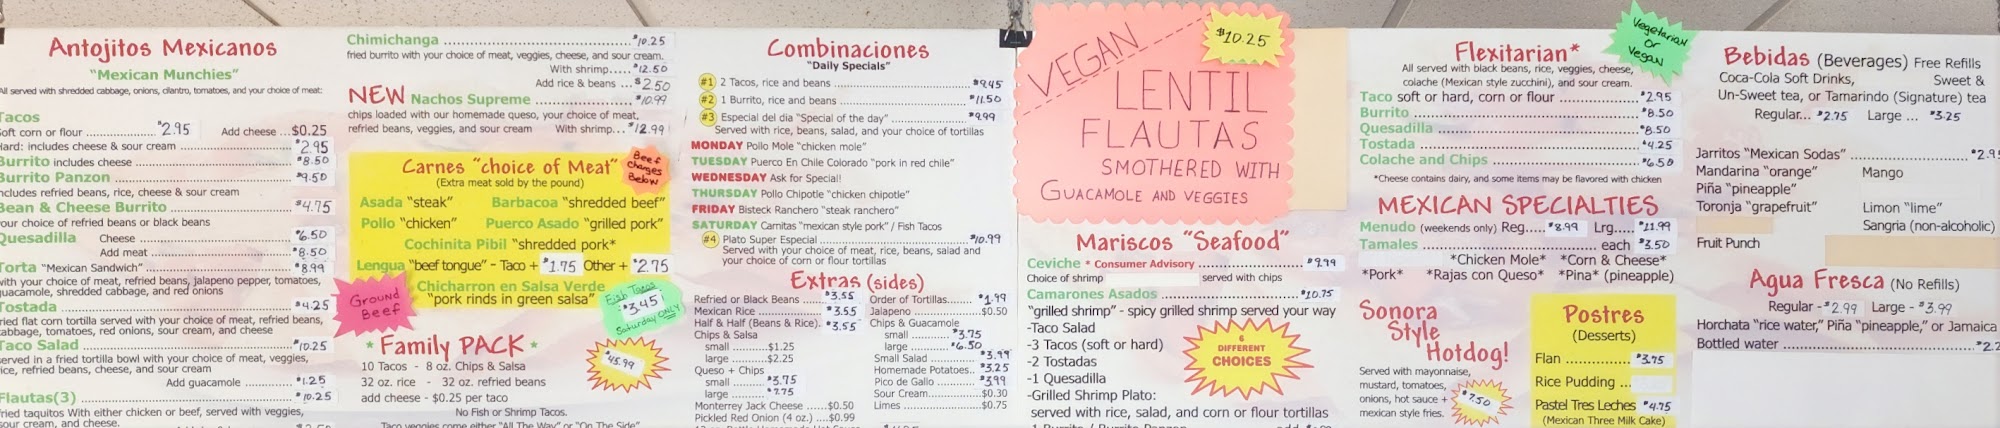 Antojitos Mexicanos
"Mexican Munchies"
All served with shredded cabbage, onions, cilantro, tomatoes, and your choice of meat:
Tacos
Soft corn or flour .............. $2.95 Add cheese ...$0.25
Hard: includes cheese & sour cream ........ $2.95
Burrito includes cheese ........ $8.50
Burrito Panzon ........ $9.50
includes refried beans, rice, cheese & sour cream
Bean & Cheese Burrito ........ $4.75
your choice of refried beans or black beans
Quesadilla Cheese ........ $6.50
Add meat ........ $8.50
Torta "Mexican Sandwich" ........ $8.99
with your choice of meat, refried beans, jalapeno pepper, tomatoes,
guacamole, shredded cabbage, and red onions
Tostada ........ $4.25
fried flat corn tortilla served with your choice of meat, refried beans,
cabbage, tomatoes, red onions, sour cream, and cheese
Taco Salad ........ $10.25
served in a fried tortilla bowl with your choice of meat, veggies,
rice, refried beans, cheese, and sour cream
Add guacamole ........ $1.25
Flautas(3) ........ $10.25
fried taquitos With either chicken or beef, served with veggies,
sour cream, and cheese.
Chimichanga ........ $10.25
fried burrito with your choice of meat, veggies, cheese, and sour cream.
With shrimp..... $12.50
Add rice & beans ... $2.50
NEW Nachos Supreme ........ $10.99
chips loaded with our homemade queso, your choice of meat,
refried beans, veggies, and sour cream With shrimp... $12.99
Carnes "choice of Meat"
(Extra meat sold by the pound)
Beef Charges Below
Asada "steak" Barbacoa "shredded beef"
Pollo "chicken" Puerco Asado "grilled pork"
Cochinita Pibil "shredded pork*
Lengua "beef tongue" - Taco + $1.75 Other + $2.75
Chicharron en Salsa Verde
"pork rinds in green salsa"
Ground Beef
Fish Tacos
$3.45
Saturday ONLY
* Family PACK *
10 Tacos - 8 oz. Chips & Salsa
32 oz. rice - 32 oz. refried beans
add cheese - $0.25 per taco
$45.99
No Fish or Shrimp Tacos.
Taco veggies come either "All The Way" or "On The Side"
Combinaciones
"Daily Specials"
#1 2 Tacos, rice and beans ........ $9.45
#2 1 Burrito, rice and beans ........ $11.50
#3 Especial del dia "Special of the day" ........ $9.99
Served with rice, beans, salad, and your choice of tortillas
MONDAY Pollo Mole "chicken mole"
TUESDAY Puerco En Chile Colorado "pork in red chile"
WEDNESDAY Ask for Special!
THURSDAY Pollo Chipotle "chicken chipotle"
FRIDAY Bisteck Ranchero "steak ranchero"
SATURDAY Carnitas "mexican style pork" / Fish Tacos
#4 Plato Super Especial ........ $10.99
Served with your choice of meat, rice, beans, salad and
your choice of corn or flour tortillas
Extras (sides)
Refried or Black Beans ..... $3.55
Mexican Rice ........ $3.55
Half & Half (Beans & Rice). $3.55
Chips & Salsa
small ........$1.25
large ........$2.25
Queso + Chips
small ........ $3.75
large ........ $7.75
Monterrey Jack Cheese .....$0.50
Pickled Red Onion (4 oz.) ....$0.99
Order of Tortillas....... $1.99
Jalapeno ........$0.50
Chips & Guacamole
small ........ $3.75
large ........ $6.50
Small Salad ........ $3.99
Homemade Potatoes.. $3.25
Pico de Gallo ........ $3.99
Sour Cream........$0.30
Limes ........$0.75
VEGAN
$10.25
LENTIL
FLAUTAS
SMOTHERED WITH
GUACAMOLE AND VEGGIES
Mariscos "Seafood"
Ceviche * Consumer Advisory ........ $9.79
Choice of shrimp served with chips
Camarones Asados ........ $10.75
"grilled shrimp" - spicy grilled shrimp served your way
-Taco Salad
-3 Tacos (soft or hard)
-2 Tostadas
-1 Quesadilla
-Grilled Shrimp Plato:
served with rice, salad, and corn or flour tortillas
6
DIFFERENT
CHOICES
Flexitarian*
Vegetarian or Vegan
All served with black beans, rice, veggies, cheese,
colache (Mexican style zucchini), and sour cream.
Taco soft or hard, corn or flour ........ $2.95
Burrito ........ $8.50
Quesadilla ........ $8.50
Tostada ........ $4.25
Colache and Chips ........ $6.50
*Cheese contains dairy, and some items may be flavored with chicken
MEXICAN SPECIALTIES
Menudo (weekends only) Reg.... $8.99 Lrg..... $11.99
Tamales ........ each $3.50
*Chicken Mole* *Corn & Cheese*
*Pork* *Rajas con Queso* *Pina* (pineapple)
Sonora
Style
Hotdog!
Served with mayonnaise,
mustard, tomatoes,
onions, hot sauce +
mexican style fries.
$7.50
Postres
(Desserts)
Flan ........ $3.75
Rice Pudding ...
Pastel Tres Leches $4.75
(Mexican Three Milk Cake)
Bebidas (Beverages) Free Refills
Coca-Cola Soft Drinks, Sweet &
Un-Sweet tea, or Tamarindo (Signature) tea
Regular... $2.75 Large ... $3.25
Jarritos "Mexican Sodas" ........
Mandarina "orange" Mango
Piña "pineapple"
Toronja "grapefruit" Limon "lime"
Sangria (non-alcoholic)
Fruit Punch
Agua Fresca (No Refills)
Regular - $2.99 Large - $3.99
Horchata "rice water," Piña "pineapple," or Jamaica
Bottled water ........